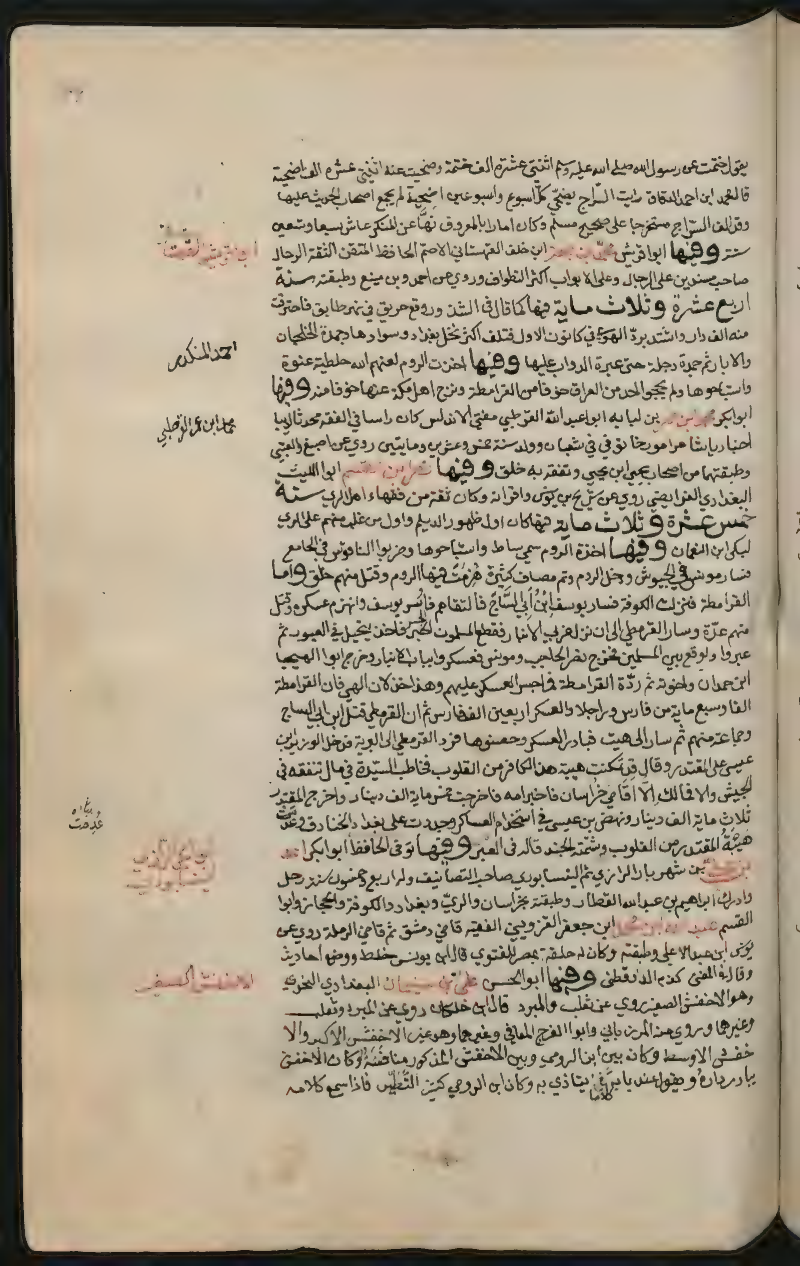 يقول ختمت عن رسول الله صلى الله عليه وسلم اثنتي عشرة الف ختمة وضحيت عنه اثنتي عشرة الف اضحية
قال محمد ابن احمد الدقاق رايت السراج يضحي كل اسبوع واسبوعين اضحية ثم يجمع اصحاب الحديث عليها
وقد الف السراج مستخرجا على صحيح مسلم وكان امارا بالمعروف نهاء عن المنكر عاش سبعا وتسعين
سنة وفيها ابو قريش محمد بن جمعة ابن خلف القهستاني الاصم الحافظ المتقن الثقة الرحال
صاحب مسندين على الرجال وعلى الابواب اكثر التطواف وروي عن احمد بن منيع وطبقته سنة
اربع عشرة وثلاث ماية فيها كما قال في الشذور وقع حريق في نهر طابق فاحترقت
منه الف دار واشتد برد الهوى في كانون الاول فتلف اكثر نخل بغداد وسوادها وجمدت الخلجان
والابار ثم جمدة دجلة حتى عبرة الدواب عليها وفيها اخذت الروم لعنهم الله ملطية عنوة
واستباحوها ولم يحج احد من العراق خوفا من القرامطة ونزح اهل مكة عنها خوفا منهم وفيها
ابو بكر محمد بن عمر بن لبابه ابو عبد الله القرطبي مفتي الاندلس كان راسا في الفقه محدثا اديبا
اخباريا شاعرا مويخا توفي في شعبان وولد سنة خمس وعشرين ومايتين روي عن اصبغ العتبي
وطبقتهما من اصحاب يحيى ابن يحيى وتفقه به خلق وفيها نصر بن القسم ابو الليث
البغدادي الفرايضي روي عن سريج بن يونس واقرانه وكان ثقة من فقهاء اهل الري سنة
خمس عشرة وثلاث ماية فيها كان اول ظهور الديلم واول من غلب منهم على الري
ليكي ابن النعمان وفيها اخذة الروم سميساط واستباحوها وضربوا الناقوس في الجامع
فسار مونس في الجيوش ودخل الروم وتم مصاف كثيرة هزمت فيها الروم وقتل منهم خلق واما
القرامطة فنزلت الكوفة فسار يوسف ابن ابي الساج فالتقاهم فاسر يوسف وانهزم عسكره وقتل
منهم عدة وسار القرمطي الى ان نزل غربي الانبار فقطع المسلمون الجسر فاخذ يتحيل في العبور ثم
عبروا واوقع ببني المسلمين فخرج نصر الحاجب ومونس فعسكروا بباب الانبار وخرج ابو الهيجا
ابن حمدان واخوته ثم ردة القرامطة فاحبس العسكر عليهم وهذا خذلان الهي فان القرامطة
الفا وسبع ماية من فارس وراجل والعسكر اربعين الف فارس ثم ان القرمطي قتل ابن ابي الساج
وجماعة منهم ثم سار الى هيت فبادر العسكر وحصنوها فرد القرمطي الى البرية فدخل الوزير ابن
عيسى على المقتدر وقال قد تمكنت هيبة هذا الكافر من القلوب فخاطب السيدة في مال تنفقه في
الجيش والا فما لك الا اقاصي خراسان فاخبر امه فاخرجت خمس ماية الف دينار واخرج المقتدر
ثلاث ماية الف دينار ونهض بن عيسى في استخدام العسكر وجددت على بغداد الخنادق وعدمت
هيبة المقتدر من القلوب وشتمته الجند قاله في العبر وفيها توفي الحافظ ابو بكر احمد
بن علي بن شهريار الرازي ثم النيسابوري صاحب التصانيف وله اربع وخمسون سنة رحل
وادرك ابراهيم بن عبد الله القصار وطبقته بخراسان والري وبغداد والكوفة والحجاز وابوا
القسم عبد الله ابن محمد ابن جعفر القزويني الفقيه قاضي دمشق ثم قاضي الرملة روي عن
يونس ابن عبد الاعلى وطبقته وكان له حلقة بمصر للفتوي قال ابن يونس خلط ووضع احاديث
وقال في المغني كذبه الدارقطني وفيها ابو الحسن علي بن سليمان البغدادي النحوي
وهو الاخفش الصغير روي عن ثعلب والمبرد قال ابن خلكان روي عن المبرد وثعلب
وغيرهما وروي عنه المرزباني وابو الفرج المعافي وغيرهما وهو غير الاخفش الاكبر والا
خفش الاوسط وكان بين ابن الرومي وبين الاخفش المذكور منافسة وكان الاخفش
يباكر داره ويقول عند بابه كلاما يتاذي به وكان ابن الرومي كثير التطير فاذا سمع كلامه
احمد المنكدر
محمد ابن عمر القرطبي
عدمت
الاخفش الصغير